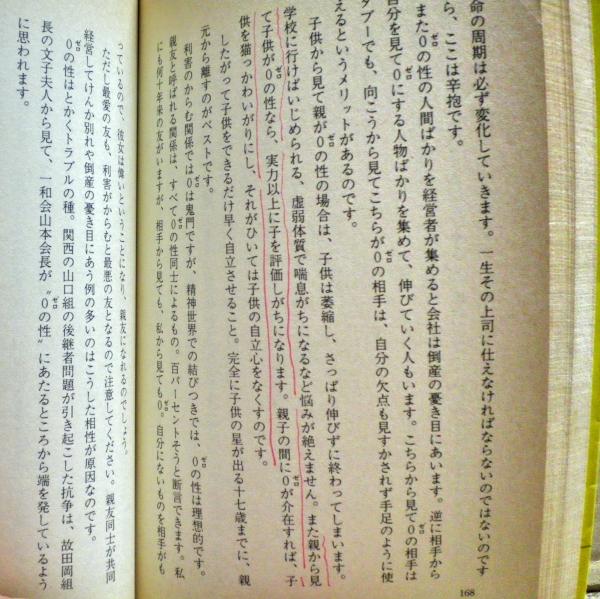 命の周期は必ず変化していきます。一生その上司に仕えなければならないのではないのです
ら、ここは辛抱です。
また0の性の人間ばかりを経営者が集めると会社は倒産の憂き目にあいます。逆に相手から
自分を見て0にする人物ばかりを集めて、伸びていく人もいます。こちらから見て0の相手は
タブーでも、向こうから見てこちらが0の相手は、自分の欠点も見すかされず手足のように使
えるというメリットがあるのです。
子供から見て親が0の性の場合は、子供は萎縮し、さっぱり伸びずに終わってしまいます。
学校に行けばいじめられる、虚弱体質で喘息がちになるなど悩みが絶えません。また親から見
て子供が0の性なら、実力以上に子を評価しがちになります。親子の間に0が介在すれば、子
供を猫っかわいがりにし、それがひいては子供の自立心をなくすのです。
したがって子供をできるだけ早く自立させること。完全に子供の星が出る十七歳までに、親
元から離すのがベストです。
利害のからむ関係では0は鬼門ですが、精神世界での結びつきでは、0の性は理想的です。
親友と呼ばれる関係は、すべて0の性同士によるもの。百パーセントそうと断言できます。私
にも何十年来の友がいますが、相手から見ても、私から見ても0。自分にないものを相手がも
っているので、彼女は偉いということになり、親友になれるのでしょう。
ただし最愛の友も、利害がからむと最悪の友となるので注意してください。親友同士が共同
経営してけんか別れや倒産の憂き目にあう例の多いのはこうした相性が原因なのです。
0の性はとかくトラブルの種。関西の山口組の後継者問題が引き起こした抗争は、故田岡組
長の文子夫人から見て、一和会山本会長が〝0の性〟にあたるところから端を発しているよう
に思われます。
168